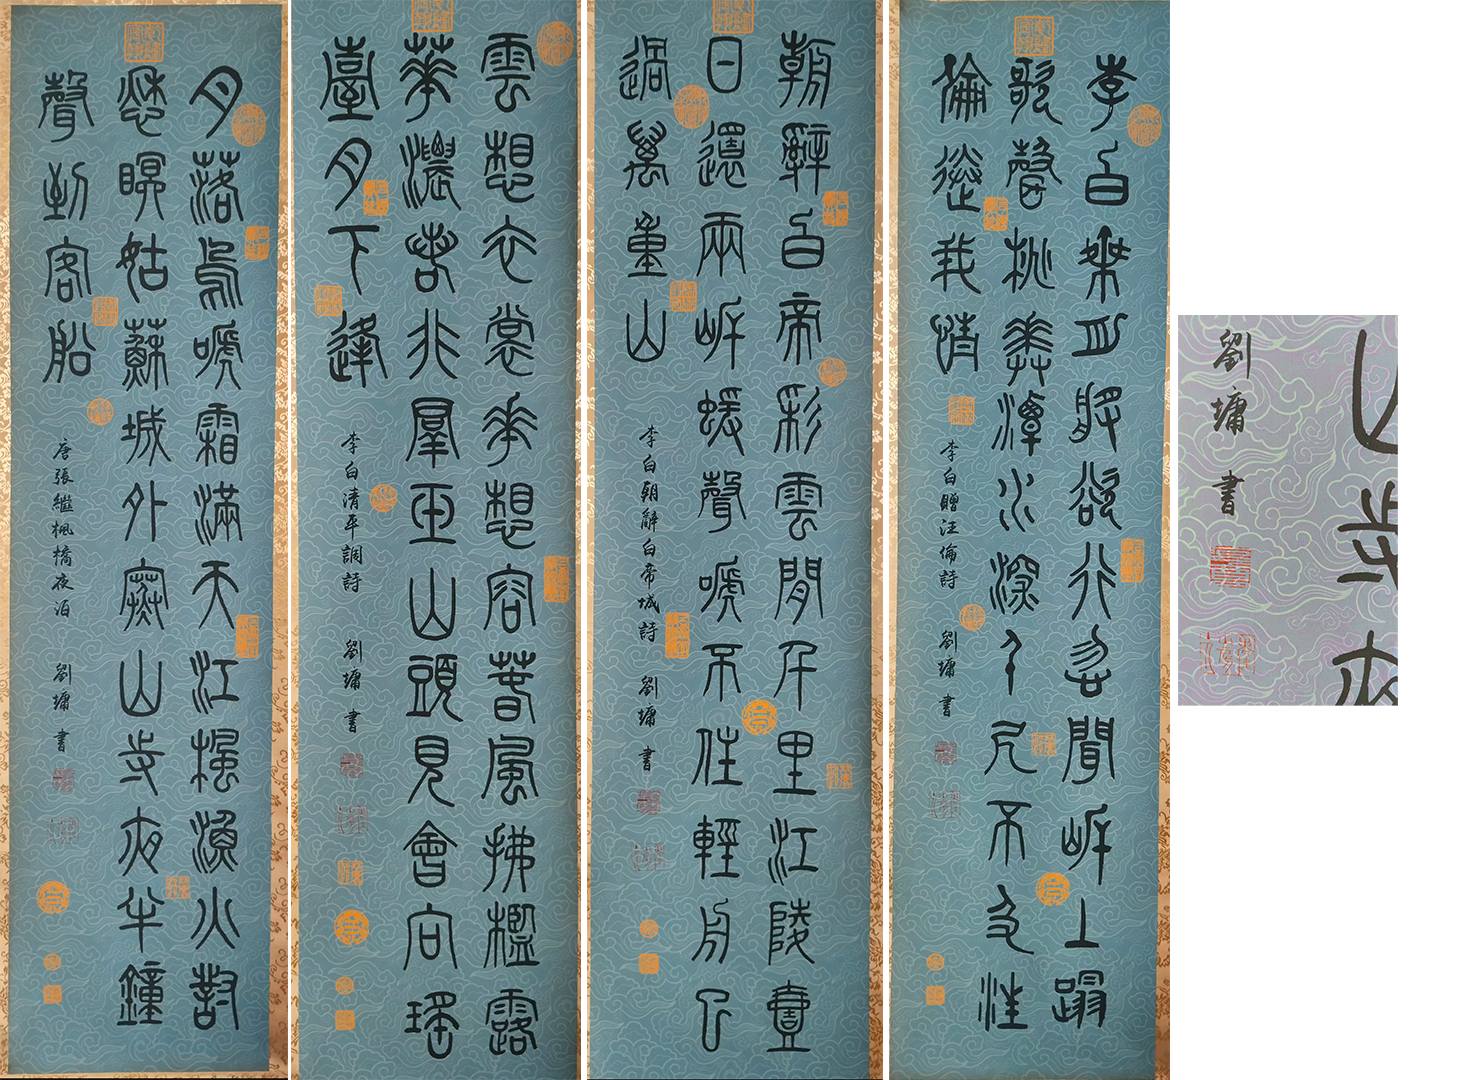 李白乘舟將欲行忽聞岸上蹋
歌聲桃花潭水深千尺不及汪
倫送我情
李白贈汪倫詩 劉墉 書
朝辭白帝彩雲間千里江陵壹
日還兩岸蝯聲嗁不住輕舟已
過萬重山
李白朝辭白帝城詩 劉墉 書
雲想衣裳華想容春風拂檻露
華濃若非羣玉山頭見會向瑤
臺月下逢
李白清平調詩 劉墉 書
月落烏嗁霜滿天江楓漁火對
愁瞑姑蘇城外寒山寺夜半鐘
聲到客船
唐張繼楓橋夜泊 劉墉 書
劉墉 書